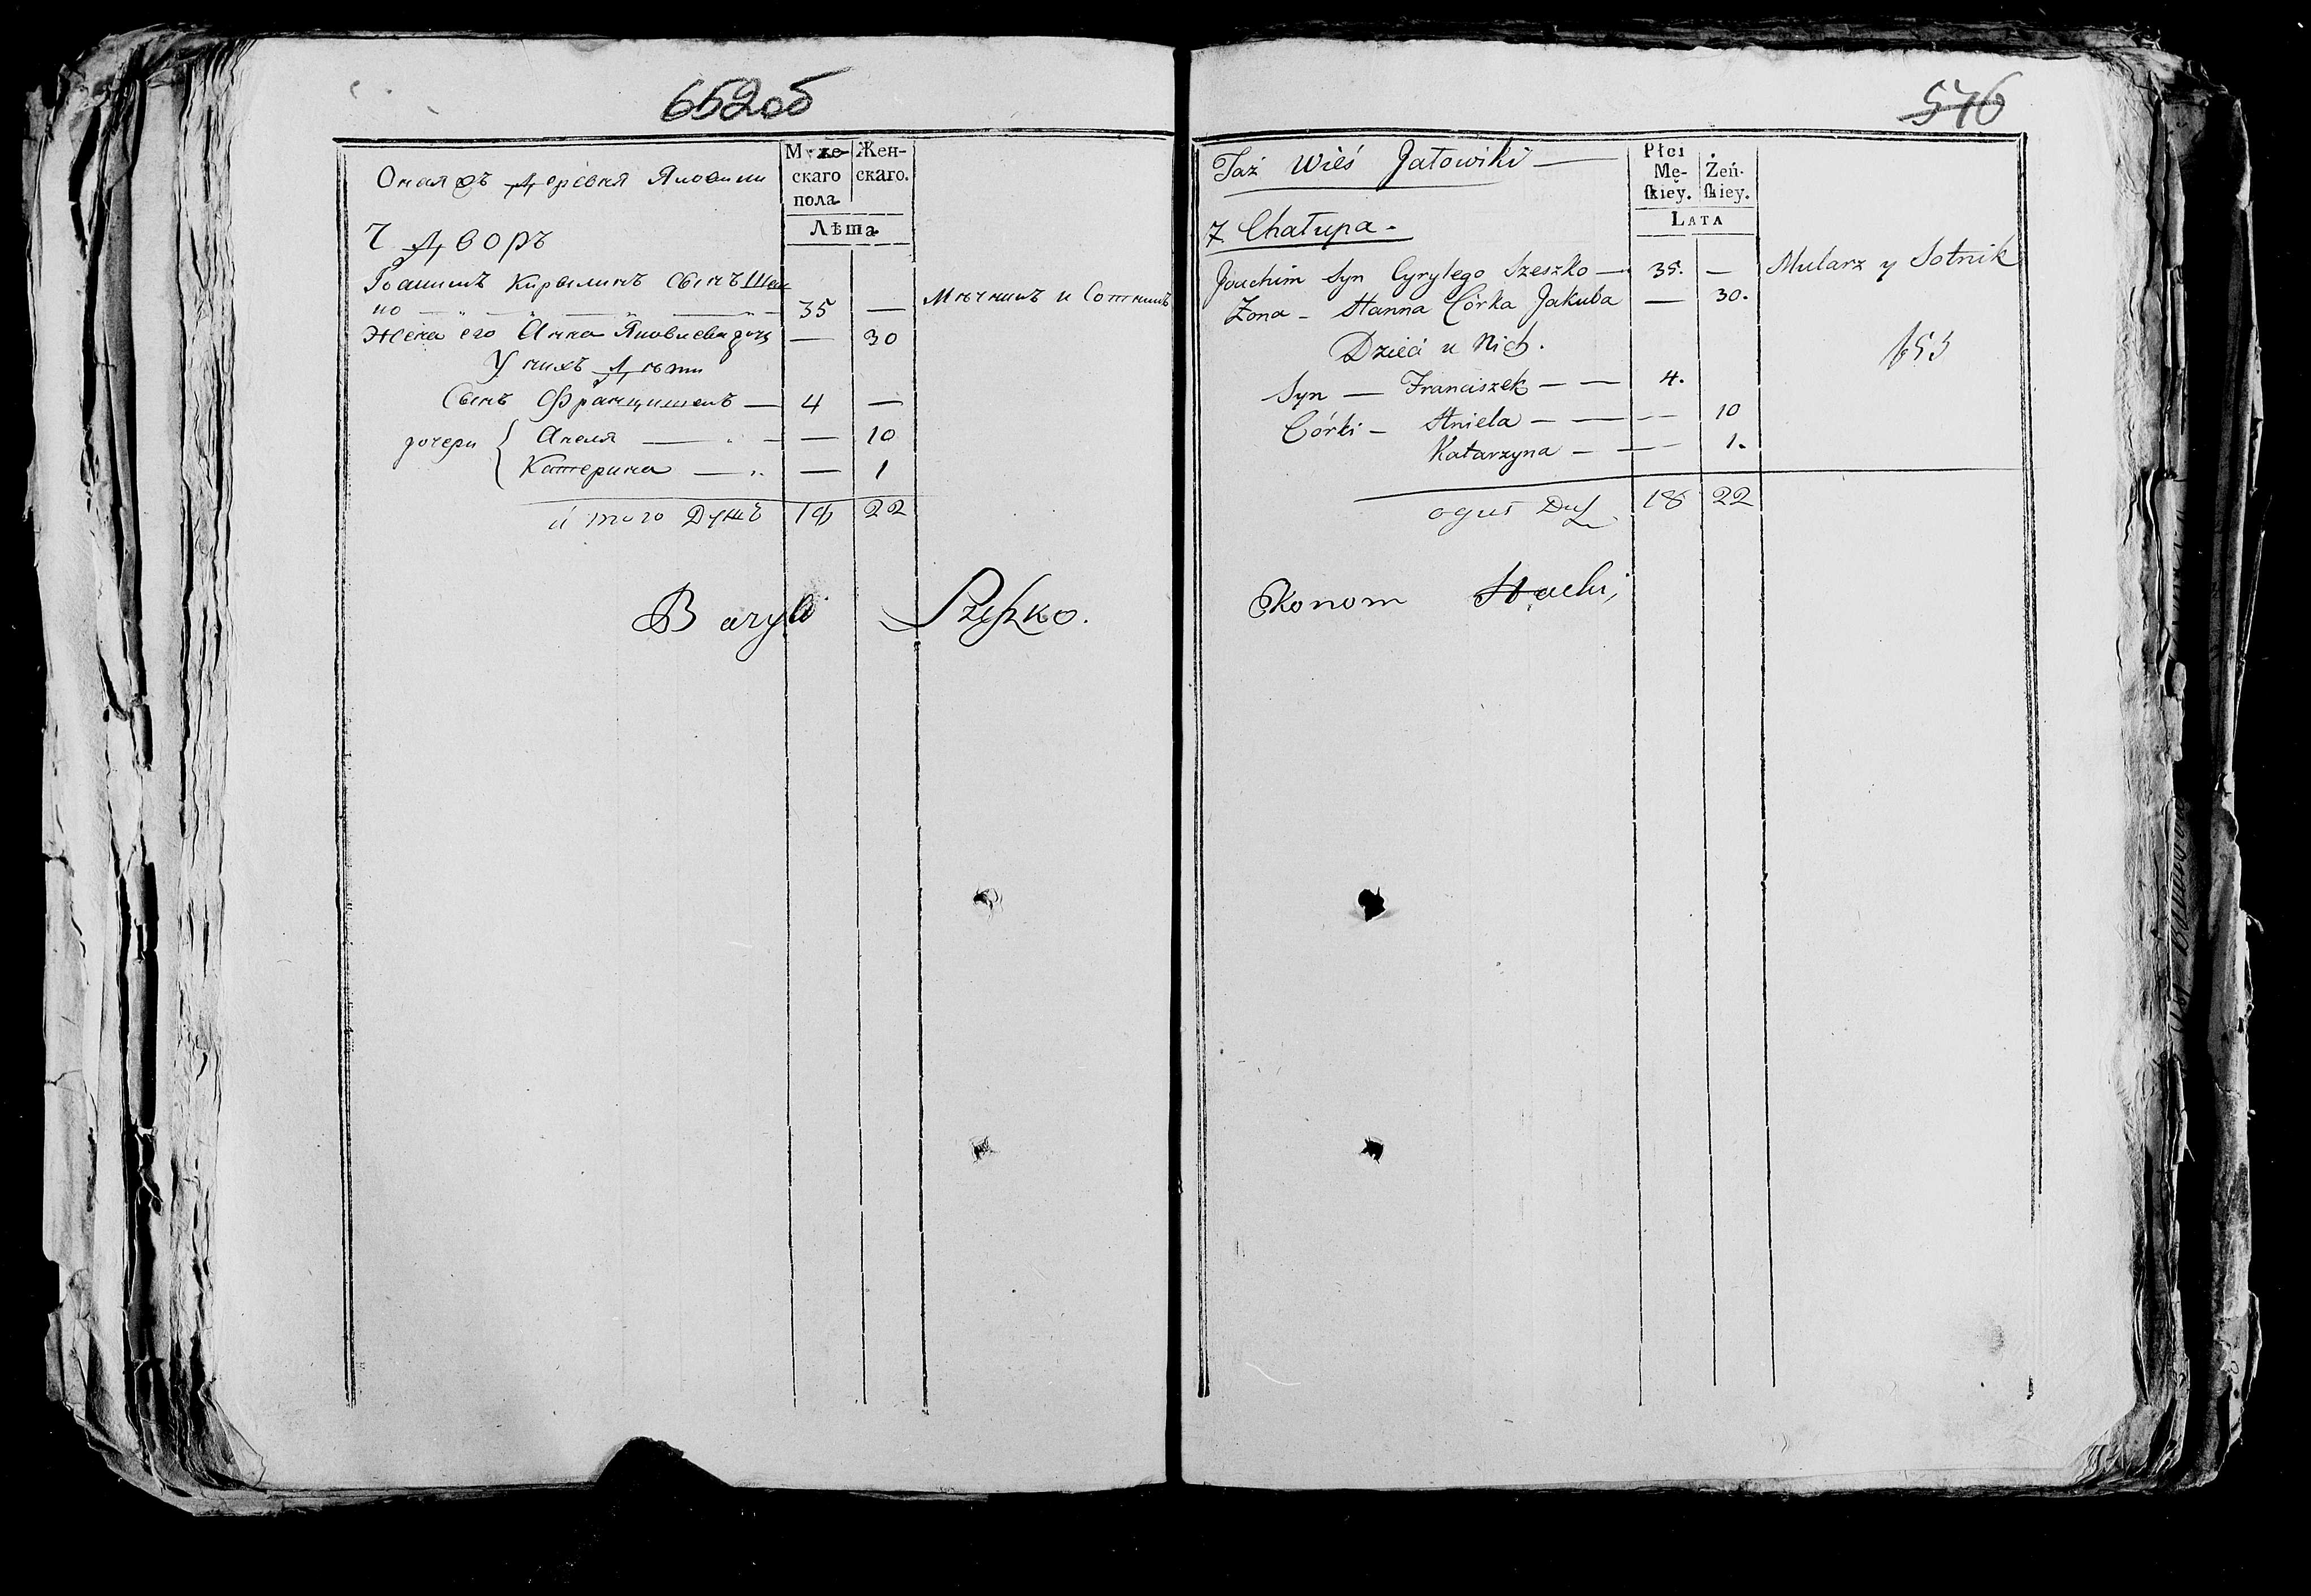 652об
Оная жъ деревня Яловики
Мужескаго пола
Женскаго.
Лѣта
7 Дворъ
Иоахимъ Кирылинъ сынъ Шеш
ко — 35 —
Жена его Анна Яковлева дочь — 30
У нихъ дѣти
Сынъ Францишекъ — 4 —
дочери { Анеля — — 10
Катерина — — 1
и того Душъ 18 22
Bazyli Szeszko.
546
Taż Wieś Jałowiki —
Płci Mę-
ſkiey.
Żeń-
ſkiey.
LATA
7. Chałupa.
Joachim Syn Cyrylego Szeszko — 35. — Mularz y Sotnik
Zona – Hanna Córka Jakuba — 30.
Dzieci u Nich.
653
Syn — Franciszek — — 4.
Córki – Aniela — — — 10
Katarzyna — — — 1.
ogul Dusz 18 22
Ekonom